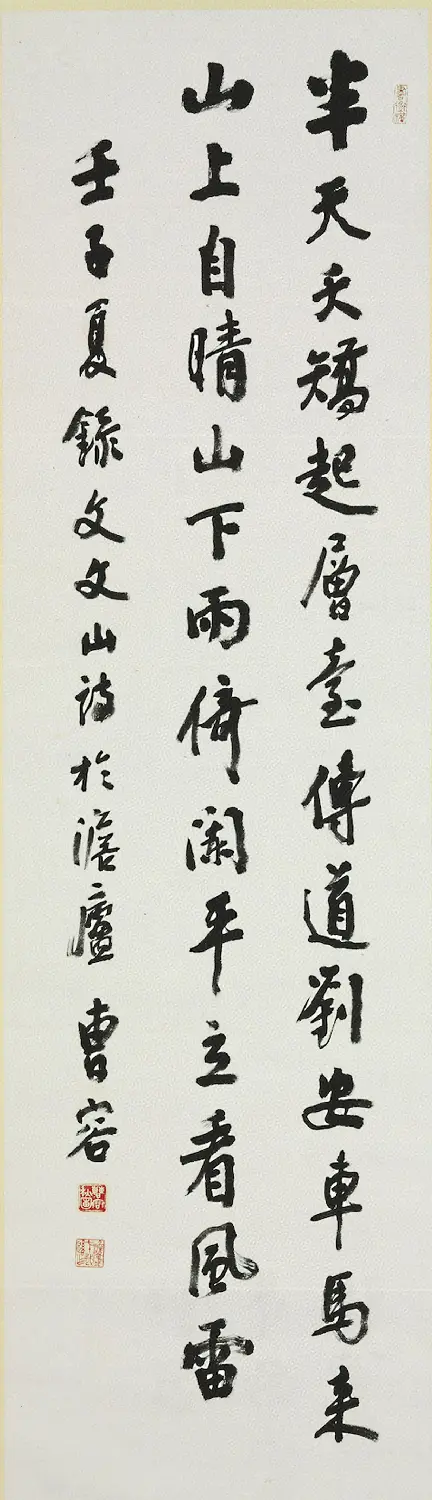 半天夭矯起層臺傳道劉安車馬来
山上自晴山下雨倚闌平立看風雷
壬子夏錄文文山詩於澹廬 曹容